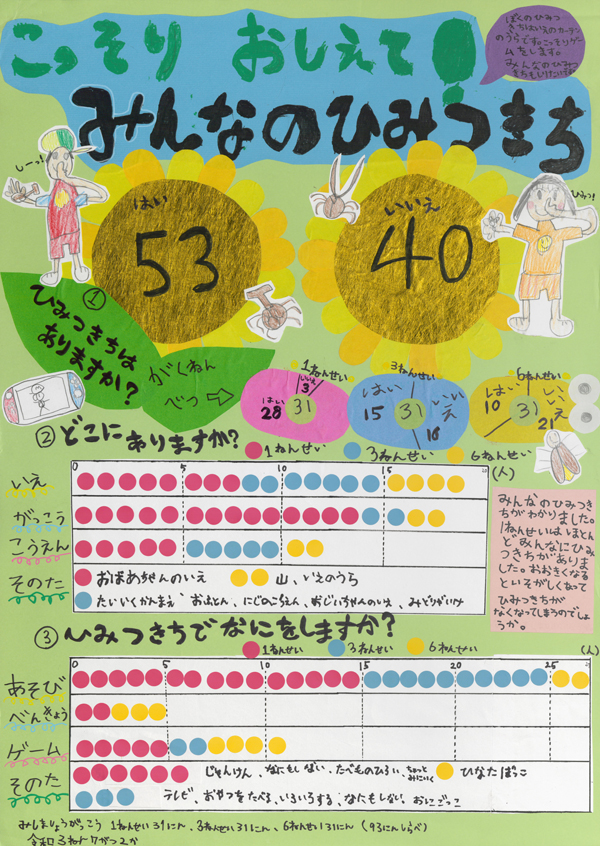 こっそり おしえて!
みんなのひみつきち
ぼくのひみつ
きちはいえのカーテン
のうらです。こっそりゲー
ムをします。
みんなのひみつ
きちもしりたいです。
しーっ!
ひみつ!
はい
53
いいえ
40
①
ひみつきちは
ありますか?
がくねん
べつ⇨
1ねんせい
いいえ
3
はい
28
31
3ねんせい
はい
15
31
いいえ
16
6ねんせい
はい
10
31
いいえ
21
②どこにありますか?
1ねんせい 3ねんせい 6ねんせい
0 5 10 15 20 (人)
いえ
がっこう
こうえん
そのた
おばあちゃんのいえ 山、いえのうら
みんなのひみつき
ちがわかりました。
1ねんせいは、ほとん
どみんなにひみ
つきちがありま
した。おおきくなる
といそがしくなって
ひみつきちが
なくなってしまうのでしょ
うか。
③ひみつきちでなにをしますか?
1ねんせい 3ねんせい 6ねんせい
0 5 10 15 20 25 (人)
あそび
べんきょう
ゲーム
そのた
じゃんけん、なにもしない、たべものひろい、ちょっとみにいく ひなたぼっこ
テレビ、おやつをたべる、いろいろする、なにもしない、おにごっこ
みしましょうがっこう 1ねんせい31にん、3ねんせい31にん、6ねんせい31にん(93にんしらべ)
令和3ねん7がつ2か